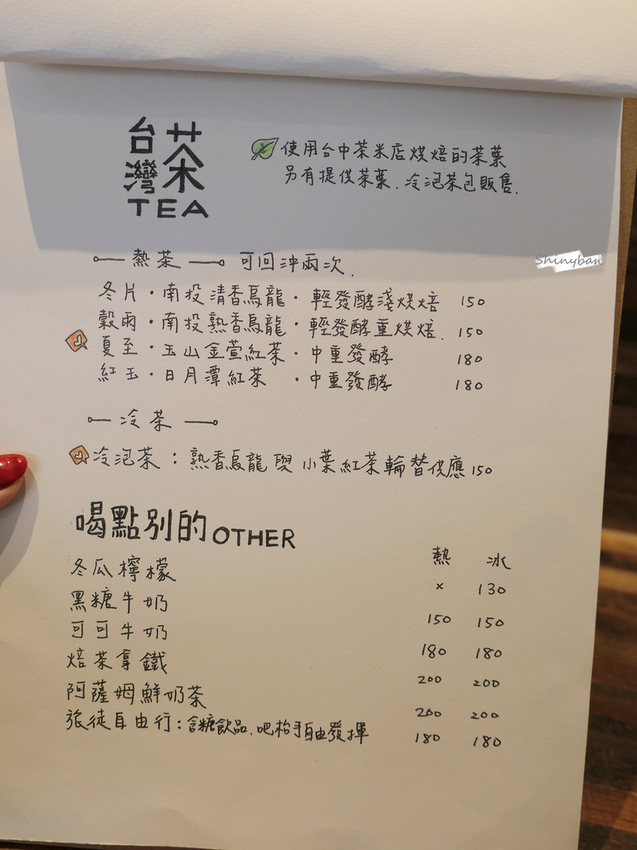 台灣茶
TEA
使用台中茶米店烘焙的茶葉
另有提供茶葉.冷泡茶包販售.
Shinyban
熱茶 可回沖兩次.
冬片・南投清香烏龍・輕發酵淺烘焙 150
穀雨・南投熟香烏龍・輕發酵重烘焙. 150
夏至・玉山金萱紅茶・中重發酵 180
紅玉・日月潭紅茶・中重發酵 180
冷茶
冷泡茶：熟香烏龍與小葉紅茶輪替供應 150
喝點別的 OTHER
熱 冰
冬瓜檸檬 x 130
黑糖牛奶 150 150
可可牛奶 180 180
焙茶拿鐵 200 200
阿薩姆鮮奶茶 200 200
張徒自由行：含糖飲品.吧枱手自由發揮 180 180